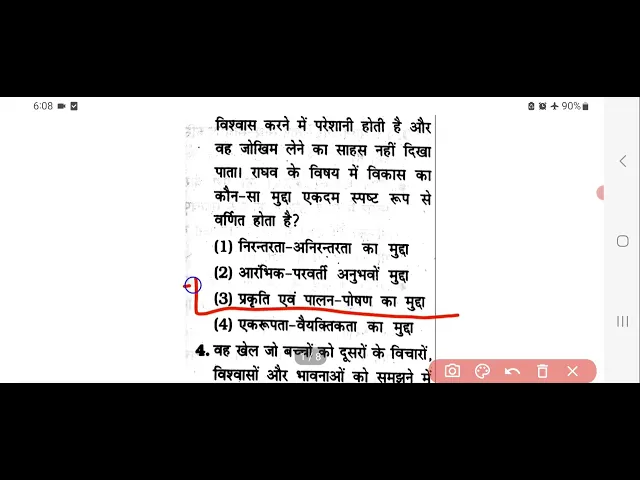 6:08
90%
विश्वास करने में परेशानी होती है और
वह जोखिम लेने का साहस नहीं दिखा
पाता। राघव के विषय में विकास का
कौन-सा मुद्दा एकदम स्पष्ट रूप से
वर्णित होता है?
(1) निरन्तरता-अनिरन्तरता का मुद्दा
(2) आरंभिक-परवर्ती अनुभवों मुद्दा
(3) प्रकृति एवं पालन-पोषण का मुद्दा
(4) एकरूपता-वैयक्तिकता का मुद्दा
4. वह खेल जो बच्चों को दूसरों के विचारों,
1 / 8
विश्वासों और भावनाओं को समझने में